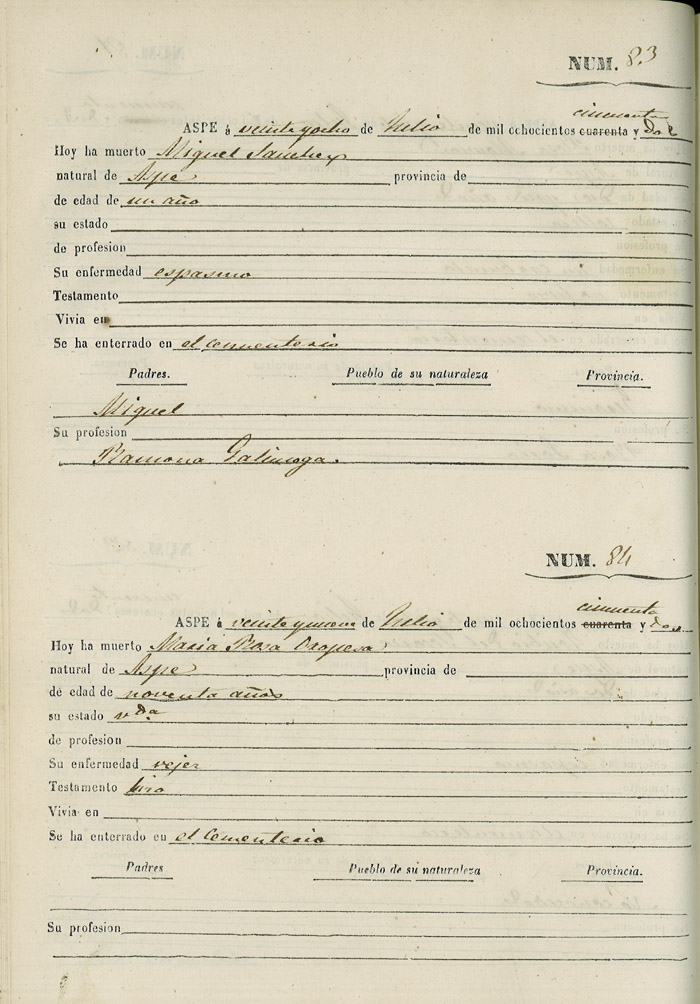 NUM. 83
cincuenta
ASPE á veinte y ocho de Julio de mil ochocientos cuarenta y dos
Hoy ha muerto Miguel Sanchez
natural de Aspe provincia de
de edad de un año
su estado
de profesion
Su enfermedad espasmo
Testamento
Vivia en
Se ha enterrado en el Cementerio
Padres. Pueblo de su naturaleza Provincia.
Miguel
Su profesion
Ramona Galinsoga
NUM. 84
cincuenta
ASPE á veinte y nueve de Julio de mil ochocientos cuarenta y dos
Hoy ha muerto Maria Rosa Oropesa
natural de Aspe provincia de
de edad de noventa años
su estado vda
de profesion
Su enfermedad vejez
Testamento hizo
Vivia en
Se ha enterrado en el Cementerio
Padres Pueblo de su naturaleza Provincia.
Su profesion